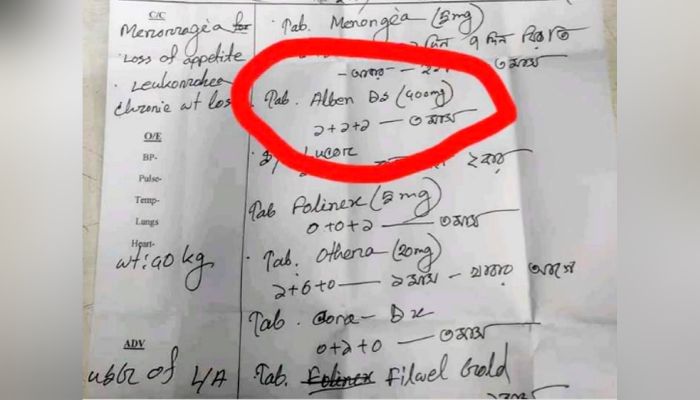 C/C
Menorragea for
Loss of appetite
Leukorrhea
Chronic wt los
O/E
BP-
Pulse-
Temp-
Lungs
Heart-
wt: 40 kg
ADV
USG of L/A
Tab. Menongea (5mg)
দিন ৭ দিন বিরতি
৩ মাস
Tab. Alben DS (400mg)
১+১+১ — ৩ মাস
Tab Folinex (5mg)
0+0+১ — ৩ মাস
Tab. Othera (20mg)
১+0+0 — ১ মাস - খাবার আগে
Tab. Cora-Dx
0+১+0 — ৩ মাস
Tab. Folinex Filwel Gold